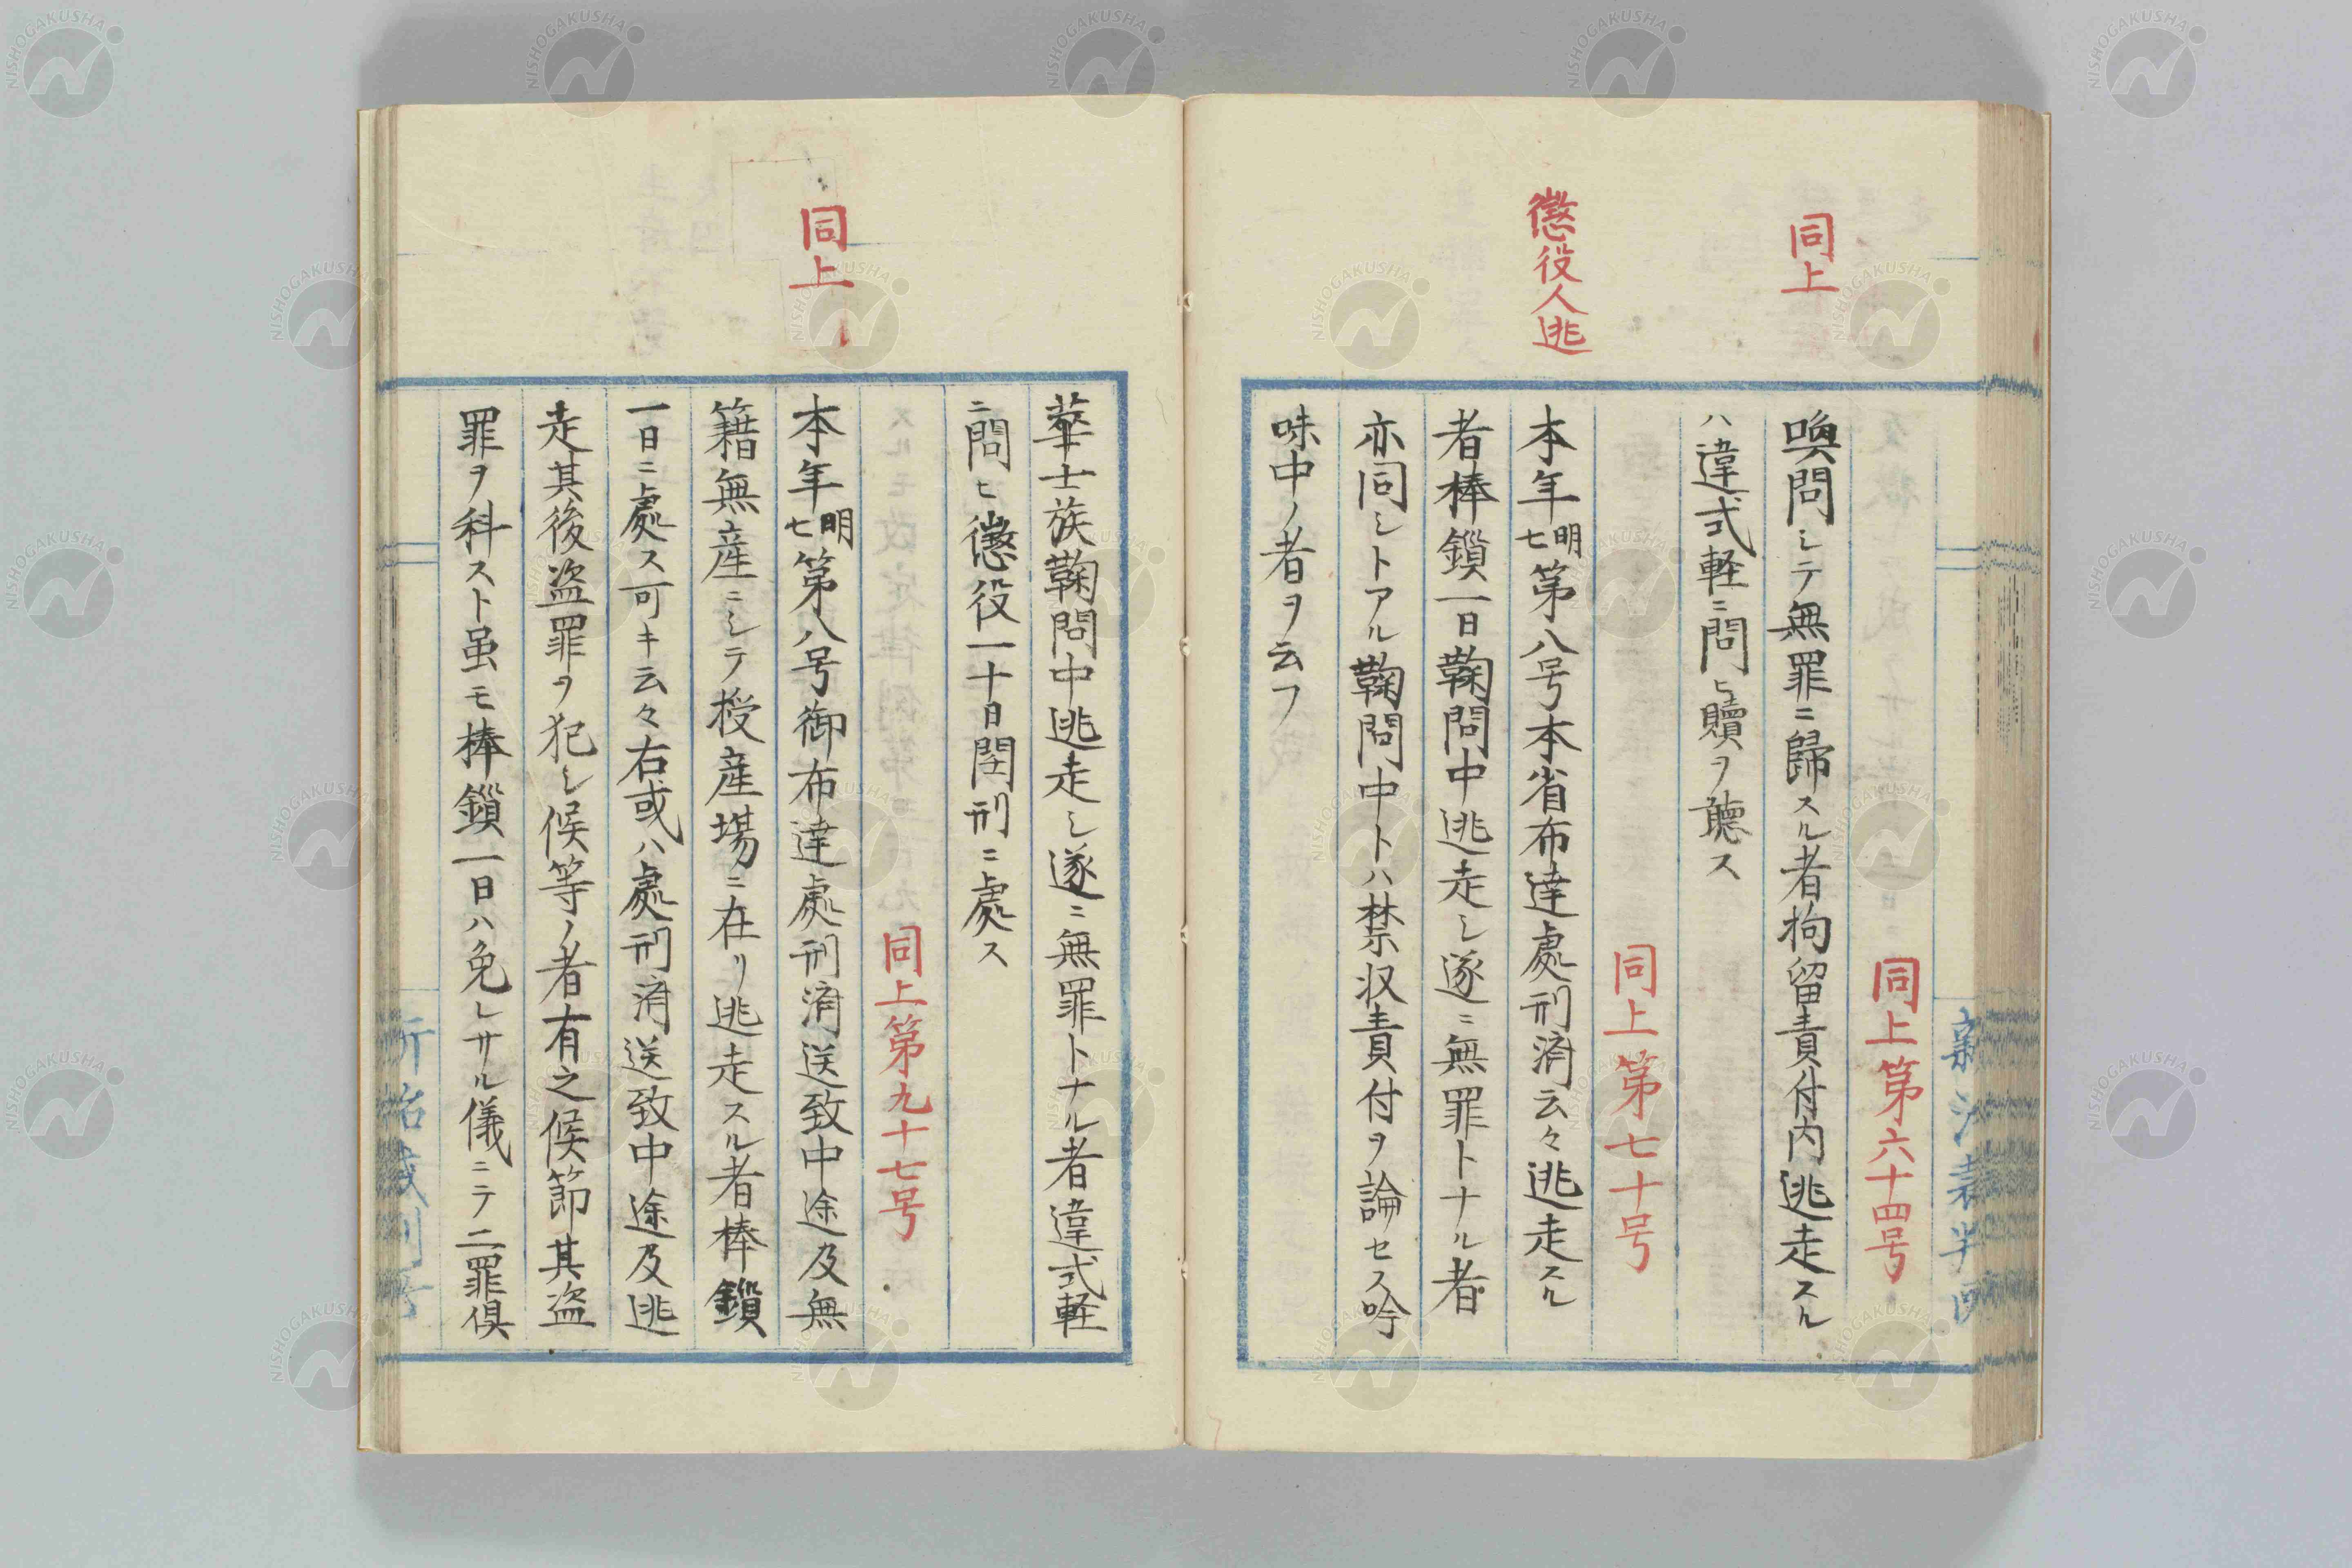 同上
懲役人逃
同上第六十四号
喚問シテ無罪ニ歸スル者拘留責付内逃走スル
ハ違式軽ニ問ヒ贖ヲ聴ス
同上第七十号
本年明七第八号本省布達處刑済云々逃走スル
者棒鎖一日鞠問中逃走シ遂ニ無罪トナル者
亦同シトアル鞠問中トハ禁収責付ヲ論セス吟
味中ノ者ヲ云フ
同上
華士族鞠問中逃走シ遂ニ無罪トナル者違式軽
ニ問ヒ懲役一十日閏刑ニ處ス
同上第九十七号
本年明七第八号御布達處刑済送致中途及無
籍無産ニシテ授産場ニ在リ逃走スル者棒鎖
一日ニ處ス可キ云々右或ハ處刑済送致中途及逃
走其後盗罪ヲ犯シ候等ノ者有之候節其盗
罪ヲ科スト虽モ棒鎖一日ハ免レサル儀ニテ二罪倶
NISHOGAKUSHA